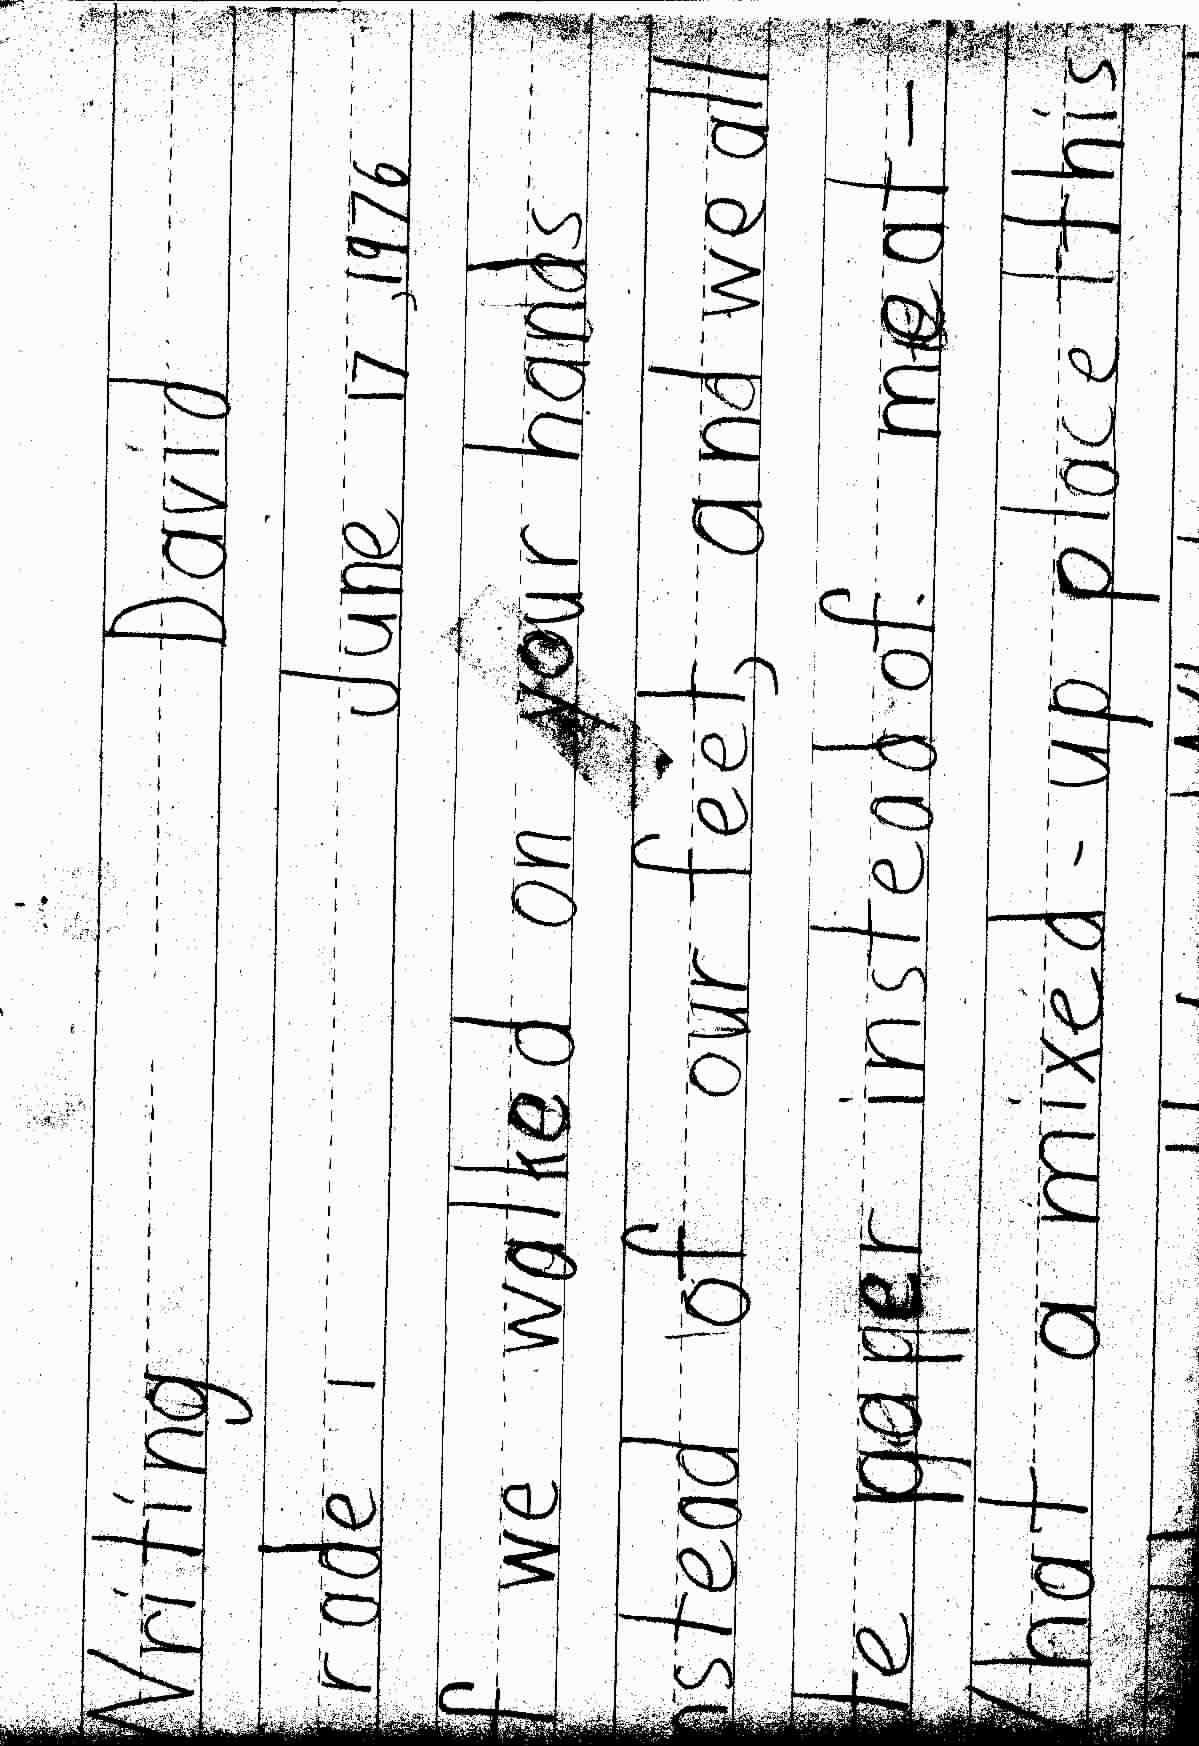 Writing David
rade 1 June 17, 1976
f we walked on your hands
nstead of our feet, and we all
te paper instead of meat-
hat a mixed-up place this